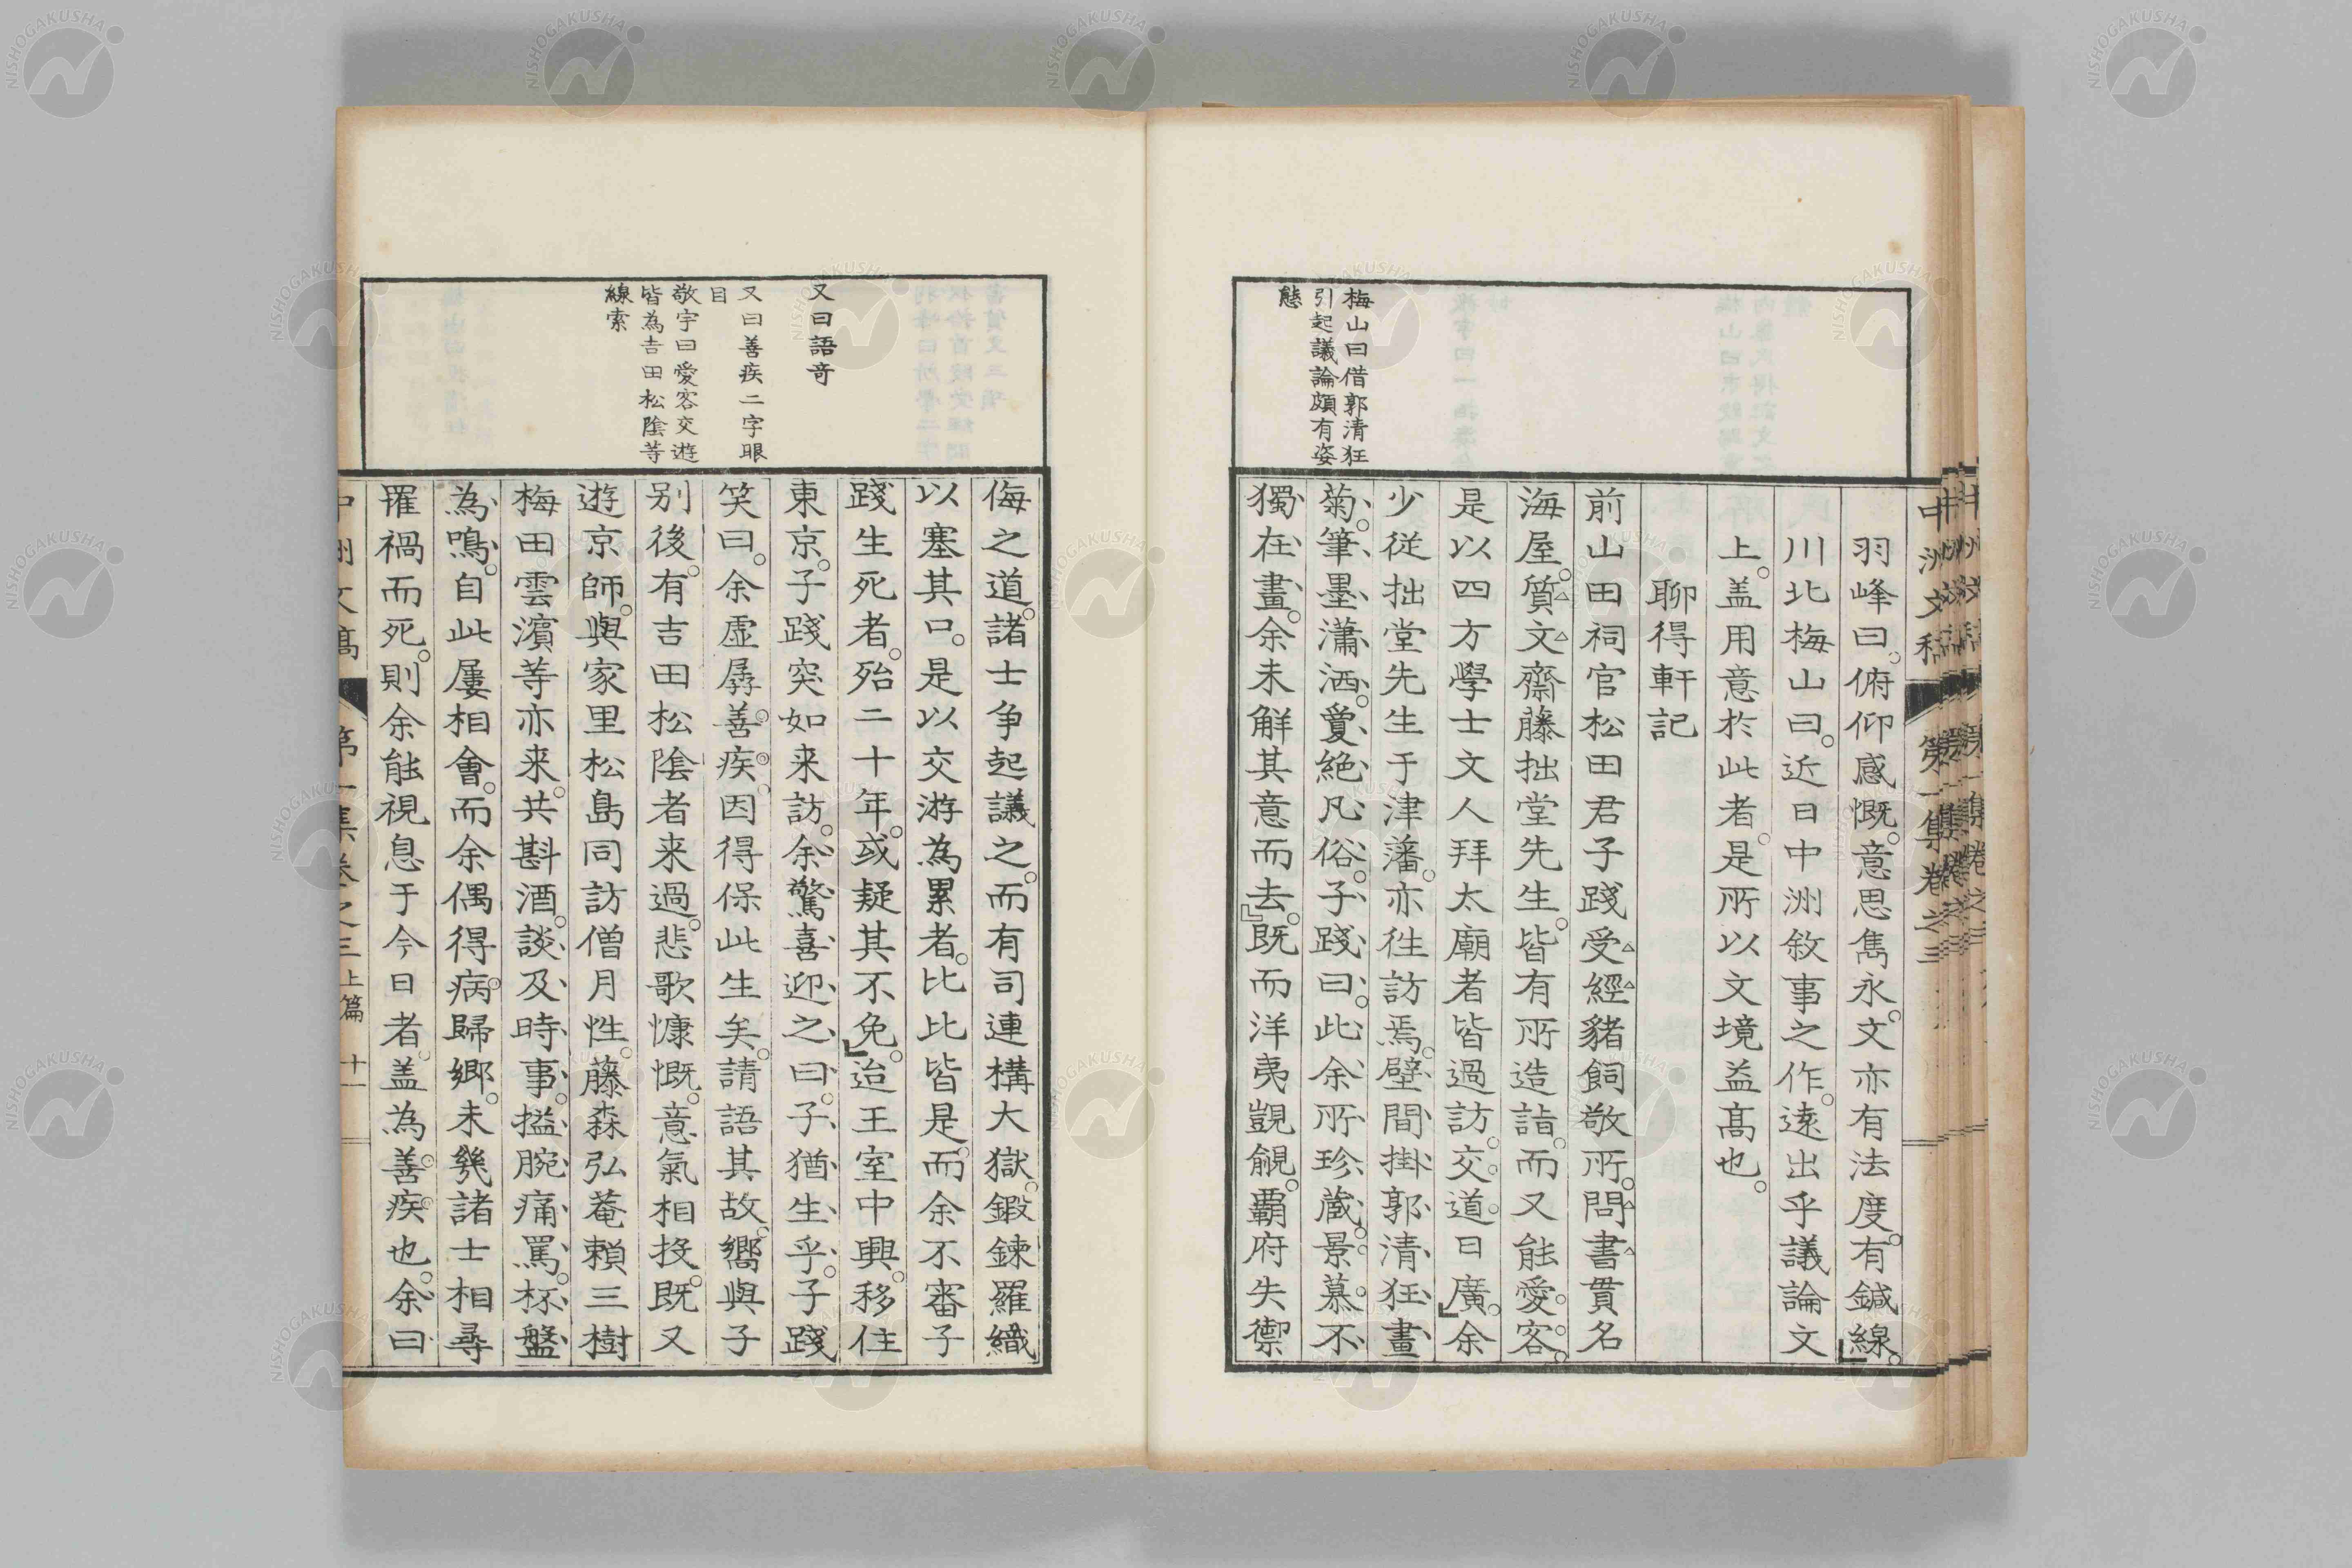 梅山曰借郭清狂
引起議論頗有姿
態
羽峰曰。俯仰感慨。意思雋永。文亦有法度。有鍼線。
川北梅山曰。近日中洲敘事之作。遠出乎議論文
上。盖用意於此者。是所以文境益髙也。
聊得軒記
前山田祠官松田君子踐受經豬飼敬所。問書貫名
海屋。質文齋藤拙堂先生。皆有所造詣。而又能愛客。
是以四方學士文人拜太廟者皆過訪。交道日廣。余
少從拙堂先生于津藩。亦徃訪焉。壁間掛郭清狂畫
菊。筆墨瀟洒。夐絶凡俗。子踐曰。此余所珍蔵。景慕不
獨在畫。余未解其意而去。既而洋夷覬覦。覇府失禦
又曰語竒
又曰善疾二字眼
目
敬宇曰愛客交遊
皆為吉田松陰等
線索
侮之道。諸士争起議之。而有司連構大獄。鍛鍊羅織
以塞其口。是以交游為累者。比比皆是。而余不審子
踐生死者。殆二十年。或疑其不免。迨王室中興。移住
東京。子踐突如来訪。余驚喜迎之曰。子猶生乎。子踐
笑曰。余虚孱善疾。因得保此生矣。請語其故。嚮與子
别後。有吉田松陰者来過。悲歌慷慨。意氣相投。既又
遊京師。與家里松島同訪僧月性。藤森弘菴頼三樹
梅田雲濱等亦来。共斟酒。談及時事。搤腕痛罵。杯盤
為鳴。自此屢相會。而余偶得病。歸鄉。未幾諸士相尋
罹禍而死。則余能視息于今日者。盖為善疾也。余曰
中洲文稿 第一集卷之三上篇 十一